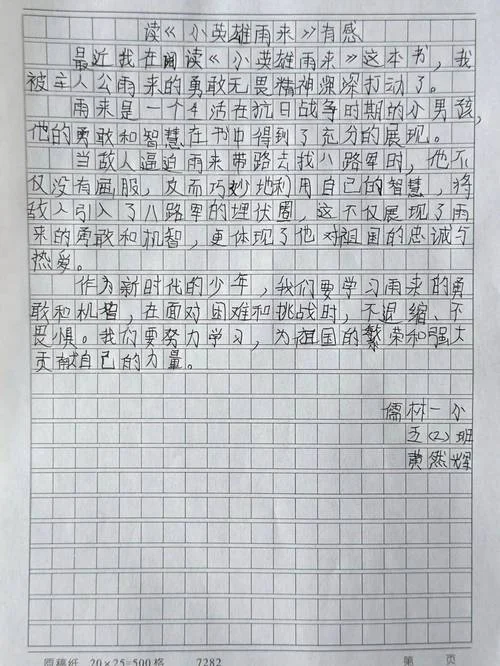 读《小英雄雨来》有感
最近我在阅读《小英雄雨来》这本书，我
被主人公雨来的勇敢无畏精神深深打动了。
雨来是一个生活在抗日战争时期的小男孩，
他的勇敢和智慧在书中得到了充分的展现。
当敌人逼迫雨来带路去找八路军时，他不
仅没有屈服，反而巧妙地利用自己的智慧，将
敌人引入了八路军的埋伏圈，这不仅展现了雨
来的勇敢和机智，更体现了他对祖国的忠诚与
热爱。
作为新时代的少年，我们要学习雨来的勇
敢和机智，在面对困难和挑战时，不退缩、不
畏惧。我们要努力学习，为祖国的繁荣和强大
贡献自己的力量。
儒林一小
五(2)班
黄然辉
原稿纸 20×25=500格 7282 第 页